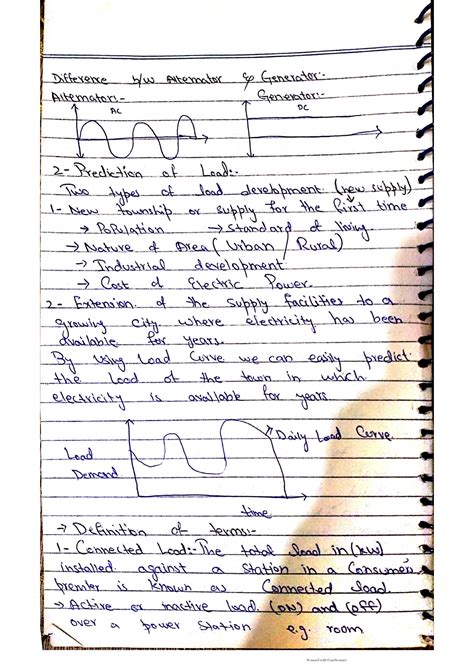 Difference b/w Alternator & Generator:-
Alternator:- Generator:-
AC DC
2- Prediction of Load:-
Two types of load development (new supply)
1- New township or supply for the first time
→ Population → Standard of living
→ Nature of Area (Urban / Rural)
→ Industrial development
→ Cost of Electric Power.
2- Extension of the supply facilities to a
growing city where electricity has been
available for years.
By using Load Curve we can easily predict
the load of the town in which
electricity is available for years
Daily Load Curve
Load
Demand
time
→ Definition of terms:-
1- Connected Load:- The total load in (kW)
installed against a Station in a Consumer
premier is known as Connected load.
→ Active or inactive load. (ON) and (OFF)
over a power station e.g. room